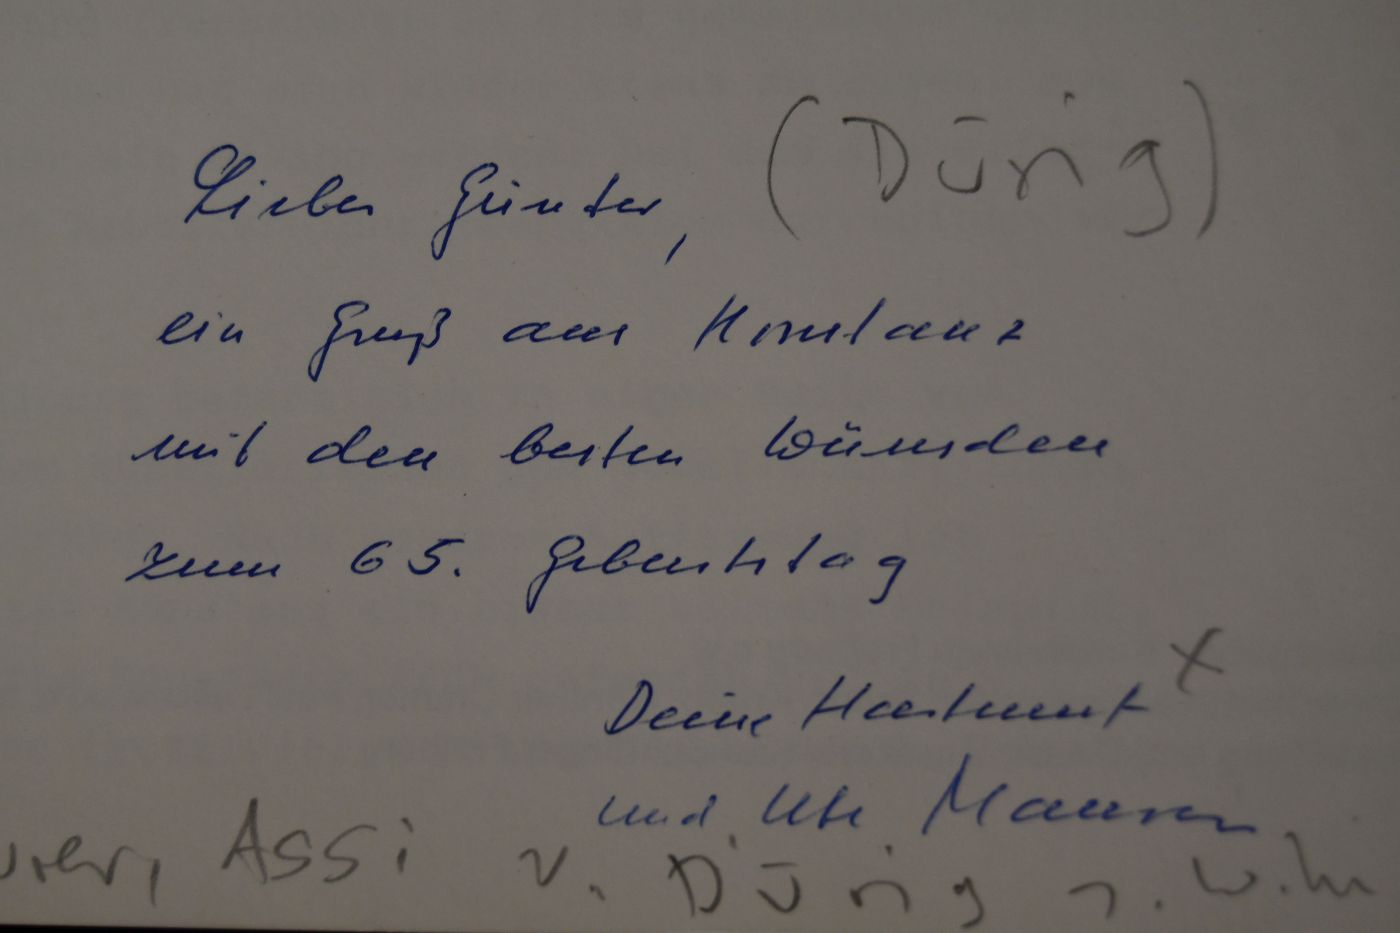 Lieber Günter, (Dürig)
ein Gruß aus Konstanz
mit den besten Wünschen
zum 65. Geburtstag
Deine Hartmut x
und Ute Maurer
urer, Assi v. Dürig